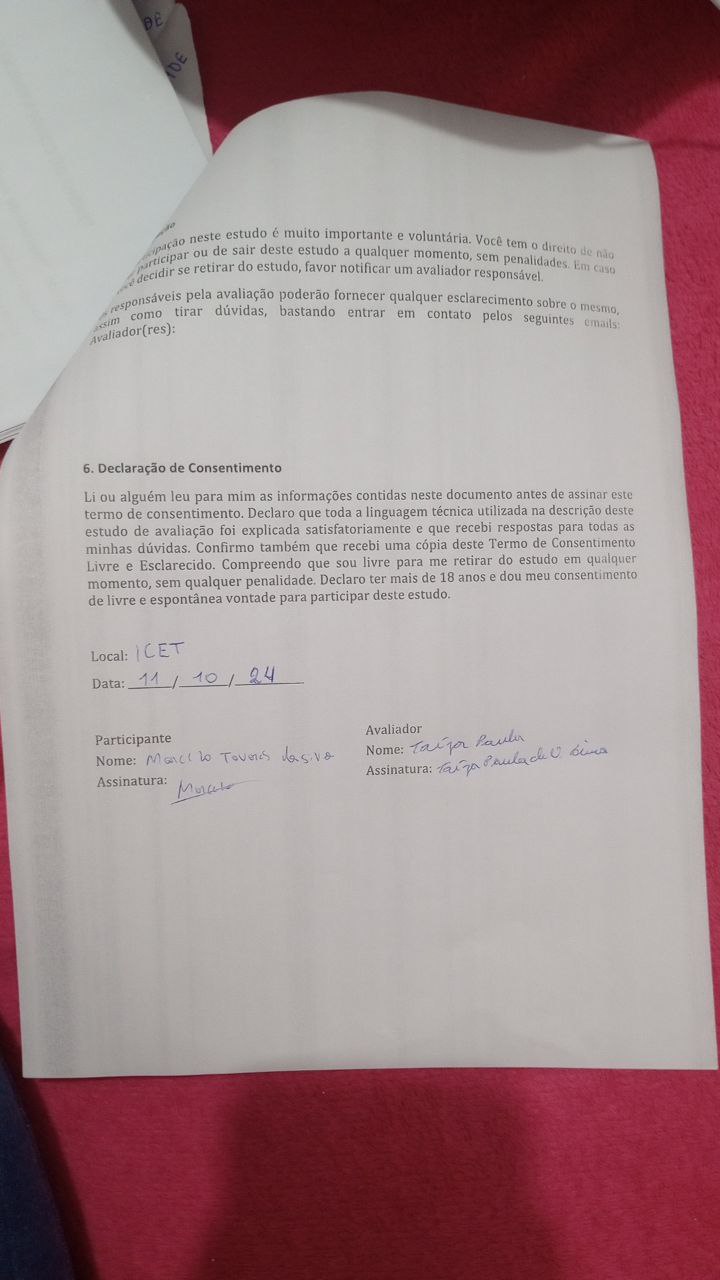 DE
DE
ção
participação neste estudo é muito importante e voluntária. Você tem o direito de não
participar ou de sair deste estudo a qualquer momento, sem penalidades. Em caso
você decidir se retirar do estudo, favor notificar um avaliador responsável.
responsáveis pela avaliação poderão fornecer qualquer esclarecimento sobre o mesmo,
assim como tirar dúvidas, bastando entrar em contato pelos seguintes emails:
Avaliador(res):
6. Declaração de Consentimento
Li ou alguém leu para mim as informações contidas neste documento antes de assinar este
termo de consentimento. Declaro que toda a linguagem técnica utilizada na descrição deste
estudo de avaliação foi explicada satisfatoriamente e que recebi respostas para todas as
minhas dúvidas. Confirmo também que recebi uma cópia deste Termo de Consentimento
Livre e Esclarecido. Compreendo que sou livre para me retirar do estudo em qualquer
momento, sem qualquer penalidade. Declaro ter mais de 18 anos e dou meu consentimento
de livre e espontânea vontade para participar deste estudo.
Local: ICET
Data: 11 / 10 / 24
Participante
Nome: Marcelo Tavares da silva
Assinatura: Marcelo
Avaliador
Nome: Taíza Paula
Assinatura: Taíza Paula de O. Lima